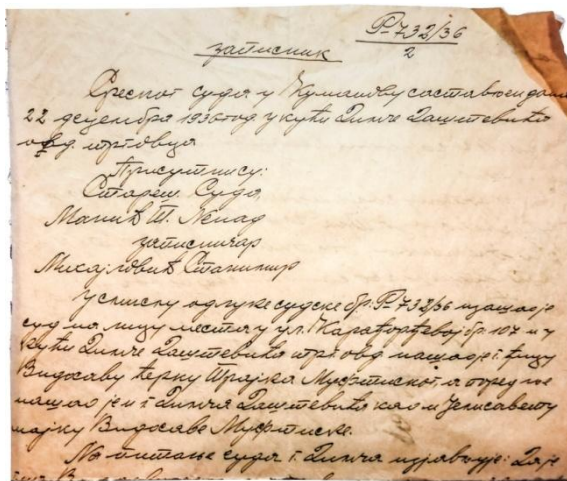 Р-732/36
2
записник
Среског суда у Куманову састављен дана
22 децембра 1936 год у кући Динче Даштевића
овд. трговца
Присутни су:
Стареш. Суда,
Манић Т. Ненад
записничар
Михајловић Станимир
У смислу одлуке судске бр. Р-732/36 изашао је
суд на лицу места у ул. Карађорђевој бр. 107 и у
кући Динче Даштевића трг овд нашао је г-ђицу
Видосаву ћерку Трајка а поред ње
нашао је и г. Динча Даштевића као и Јелисавету
мајку Видосаве
На питање суда г. Динча изјављује: Да је